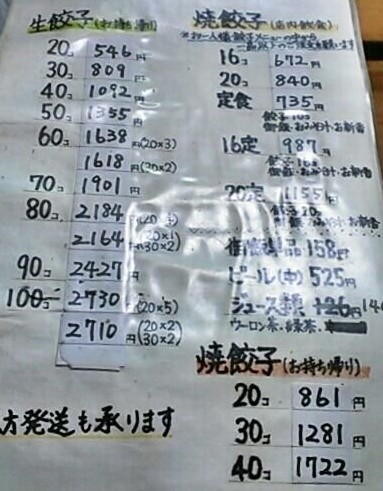 生餃子(お持ち帰り)
20コ 546円
30コ 809円
40コ 1092円
50コ 1355円
60コ 1638円(20×3)
1618円(30×2)
70コ 1901円
80コ 2184円
2164円(20×1)(30×2)
90コ 2427円
100コ 2730円(20×5)
2710円(20×2)(30×2)
方発送も承ります
焼餃子(店内飲食)
※お一人様餃子メニューの中から
一品以上のご注文お願います
16コ 672円
20コ 840円
定食 735円
餃子10コ
御飯・おみそ汁・お新香
16定 987円
餃子16コ
御飯・おみそ汁・お新香
20定 1155円
餃子20コ
御飯・おみそ汁・お新香
158円
ビール(中) 525円
ジュース類 126円 14
ウーロン茶・緑茶・
焼餃子(お持ち帰り)
20コ 861円
30コ 1281円
40コ 1722円